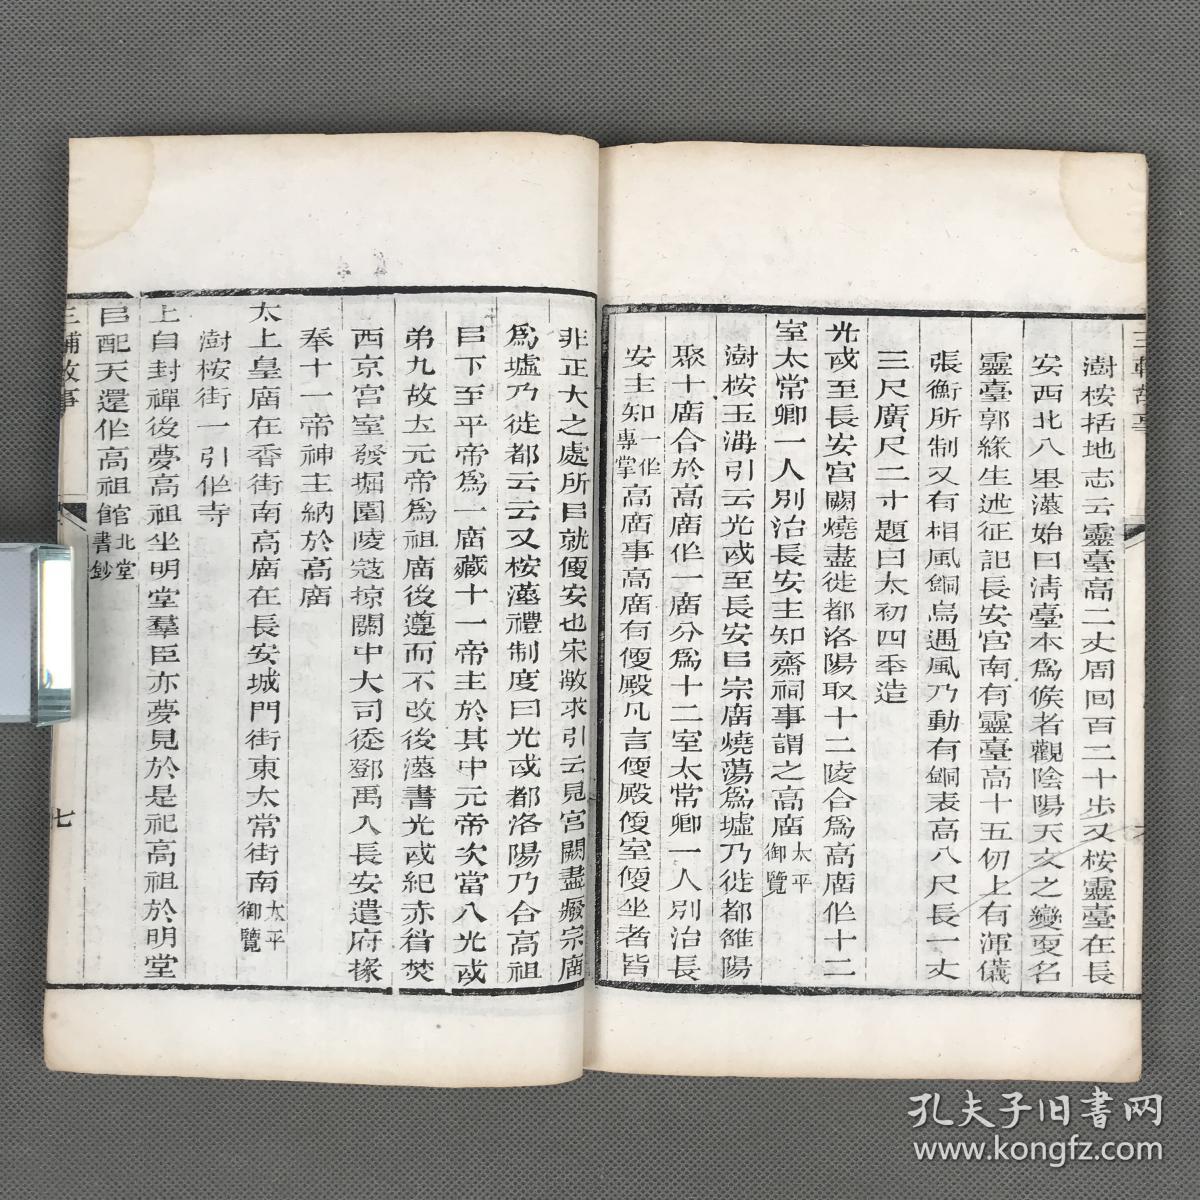 三輔故事
澍桉括地志云靈臺高二丈周回百二十步又桉靈臺在長
安西北八里漢始曰淸臺本爲候者觀陰陽天文之變更名
靈臺郭緣生述征記長安宮南有靈臺高十五仞上有渾儀
張衡所制又有相風銅烏遇風乃動有銅表高八尺長一丈
三尺廣尺二寸題曰太初四秊造
光武至長安宮闕燒盡徙都洛陽取十二陵合爲高廟作十二
室太常卿一人別治長安主知齋祠事謂之高廟太平御覽
澍桉玉海引云光武至長安㠯宗廟燒蕩爲墟乃徙都雒陽
聚十廟合於高廟作一廟分爲十二室太常卿一人別治長
安主知一作專掌高廟事高廟有便殿凡言便殿便室便坐者皆
非正大之處所㠯就便安也宋敞求引云見宮闕盡廢宗廟
爲墟乃徙都云云又桉漢禮制度曰光武都洛陽乃合高祖
㠯下至平帝爲一廟藏十一帝主於其中元帝次當八光武
弟九故立元帝爲祖廟後遵而不改後漢書光武紀赤眉焚
西京宮室發堀園陵寇掠關中大司徒鄧禹入長安遣府掾
奉十一帝神主納於高廟
太上皇廟在香街南高廟在長安城門街東太常街南太平御覽
澍桉街一引作寺
上自封禪後夢高祖坐明堂羣臣亦夢見於是祀高祖於明堂
㠯配天還作高祖館北堂書鈔
三輔故事
七
孔夫子旧书网
www.kongfz.com